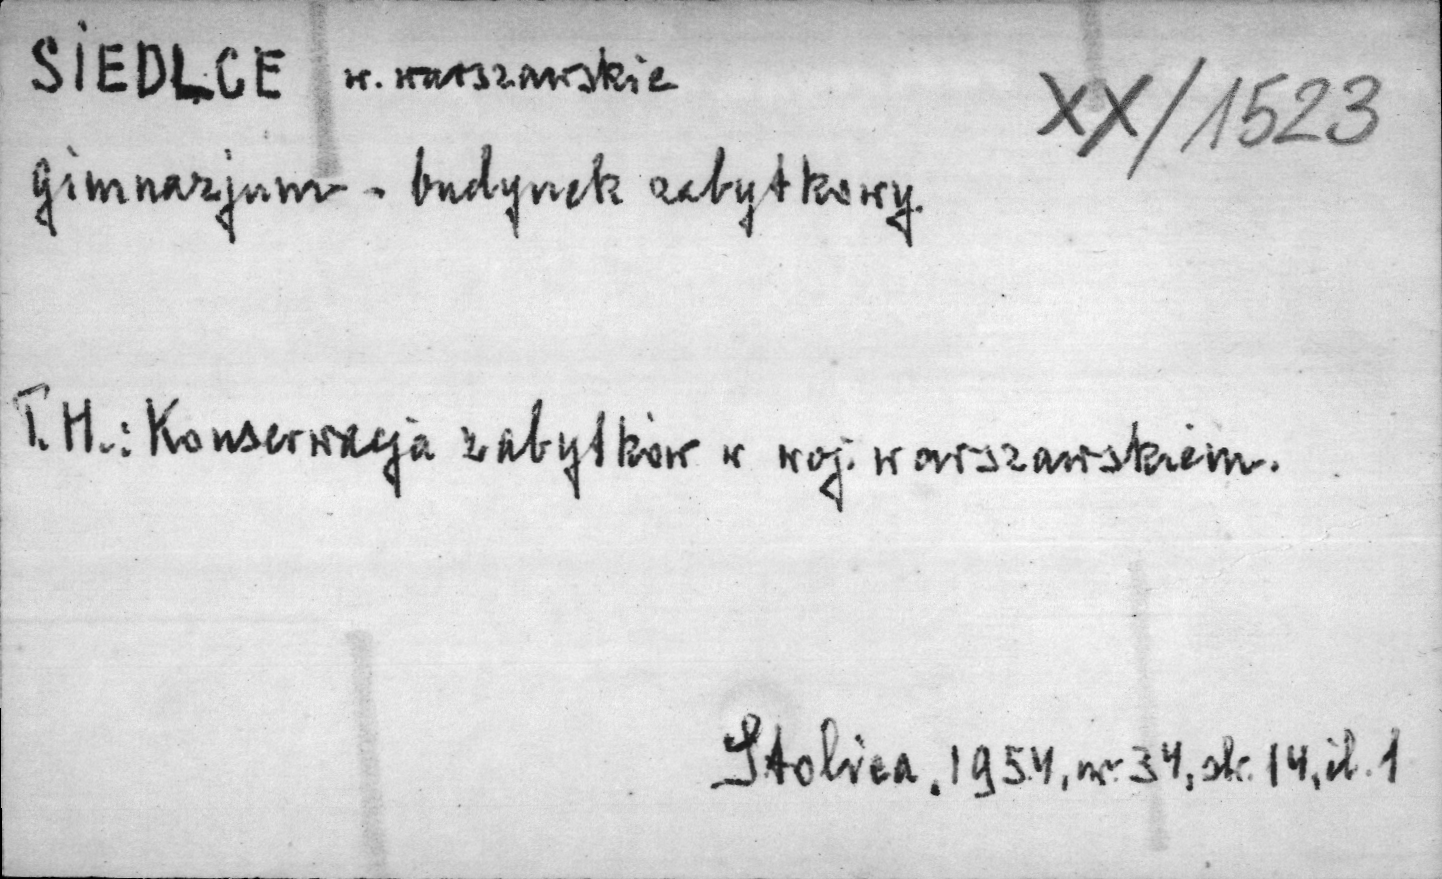 SIEDLCE w. warszawskie
XX/1523
gimnazjum - budynek zabytkowy.
T. H.: Konserwacja zabytków w woj. warszawskiem.
Stolica, 1954, nr 34, str. 14, il. 1